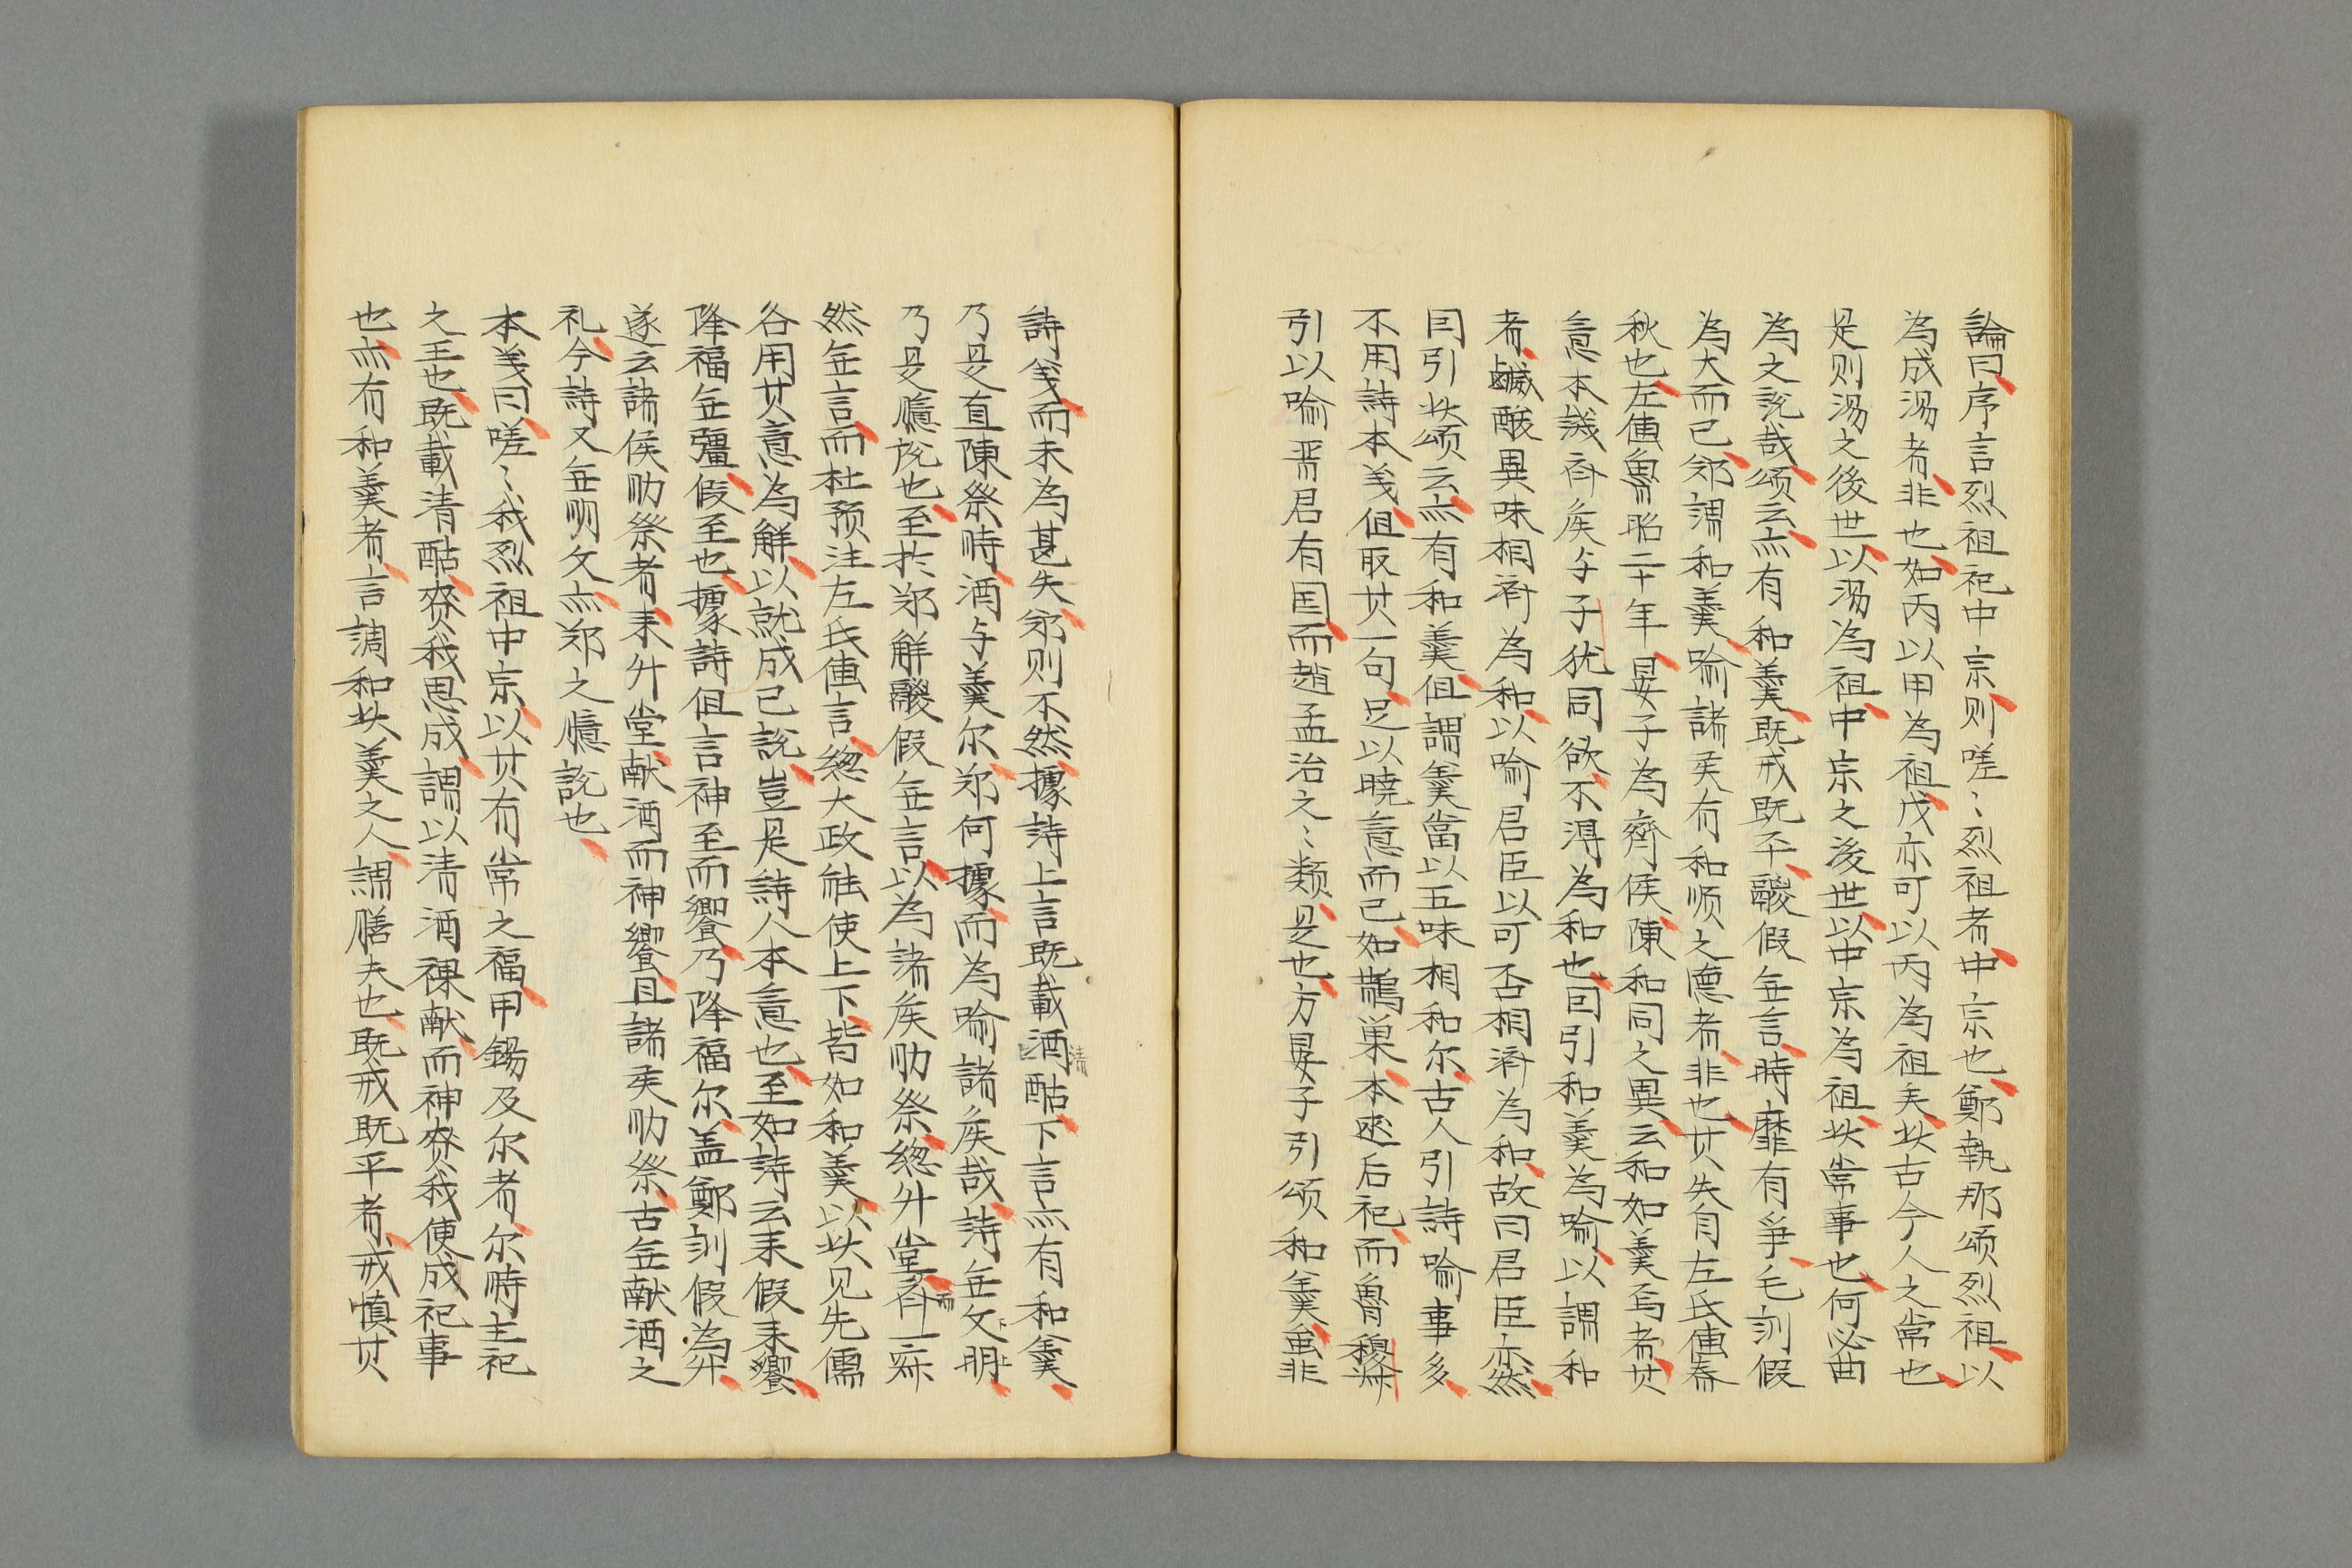 論曰序言烈祖祀中宗則嗟〻烈祖者中宗也鄭執那頌烈祖以
為成湯者非也如丙以甲為祖戊亦可以丙為祖矣此古今人之常也
是則湯之後世以湯為祖中宗之後世以中宗為祖此常事也何必曲
為之說哉頌云亦有和羹既戒既平鬷假無言時靡有爭毛訓假
為大而已鄭謂和羹喻諸侯有和順之德者非也其失自左氏傳春
秋也左傳魯昭二十年晏子為齊侯陳和同之異云和如羹焉者其
意本譏齊侯与子犹同欲不得為和也因引和羹為喻以謂和
者鹹酸異味相濟為和以喻君臣以可否相濟為和故曰君臣亦然
因引此頌云亦有和羹但謂羹當以五味相和尔古人引詩喻事多
不用詩本義但取其一句足以曉意而已如鵲巢本述后祀而魯穆叔
引以喻晋君有国而趙孟治之〻類是也方晏子引頌和羹虽非
詩義而未為甚失鄭則不然據詩上言既載酒酤下言亦有和羹
乃是直陳祭時酒与羹尔鄭何據而為喻諸侯哉詩無文明
乃是臆說也至於鄭解鬷假無言以為諸侯助祭總升堂齊一寂
然無言而杜預注左氏傳言總大政能使上下皆如和羹以此见先儒
各用其意為解以就成己說豈是詩人本意也至如詩云來假來饗
降福無疆假至也據詩但言神至而饗乃降福尔盖鄭訓假為升
遂云諸侯助祭者來升堂献酒而神饗且諸侯助祭古無献酒之
礼今詩又無明文亦鄭之臆說也
本義曰嗟〻我烈祖中宗以其有常之福用錫及尔者尔時主祀
之王也既載清酤賚我思成謂以清酒祼献而神賚我使成祀事
也亦有和羹者言調和此羹之人謂膳夫也既戒既平者戒慎其